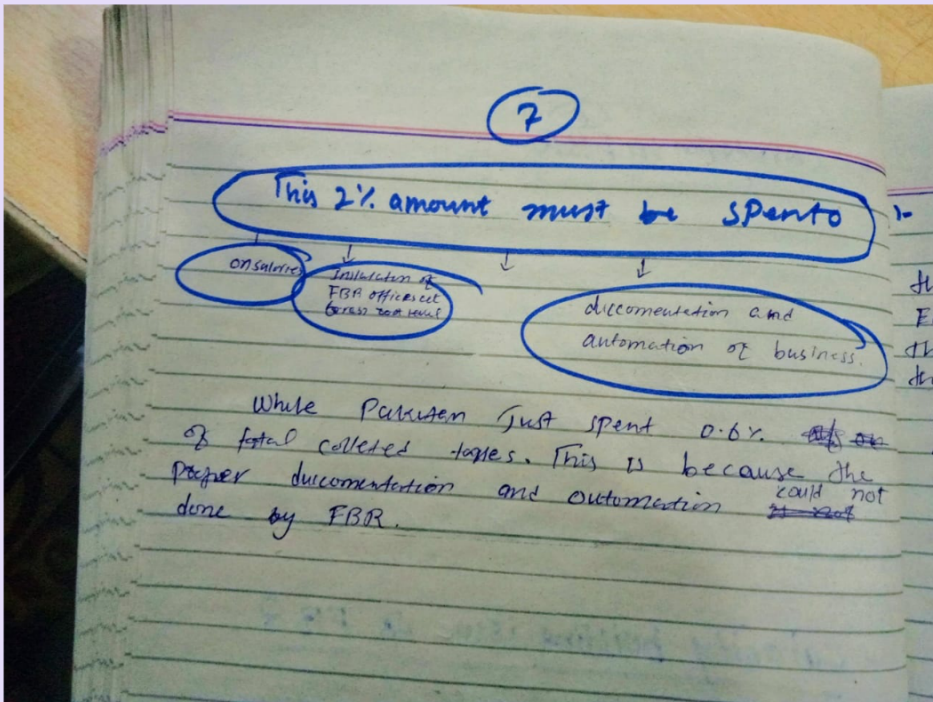 7
This 2% amount must be spento
on salaries
Instulation of
FBR offices
duccomentation and
automation of business.
While Pakisten Just spent 0.6%
of total colleted taxes. This is because the
proper duccomentation and automation could not
done by FBR.